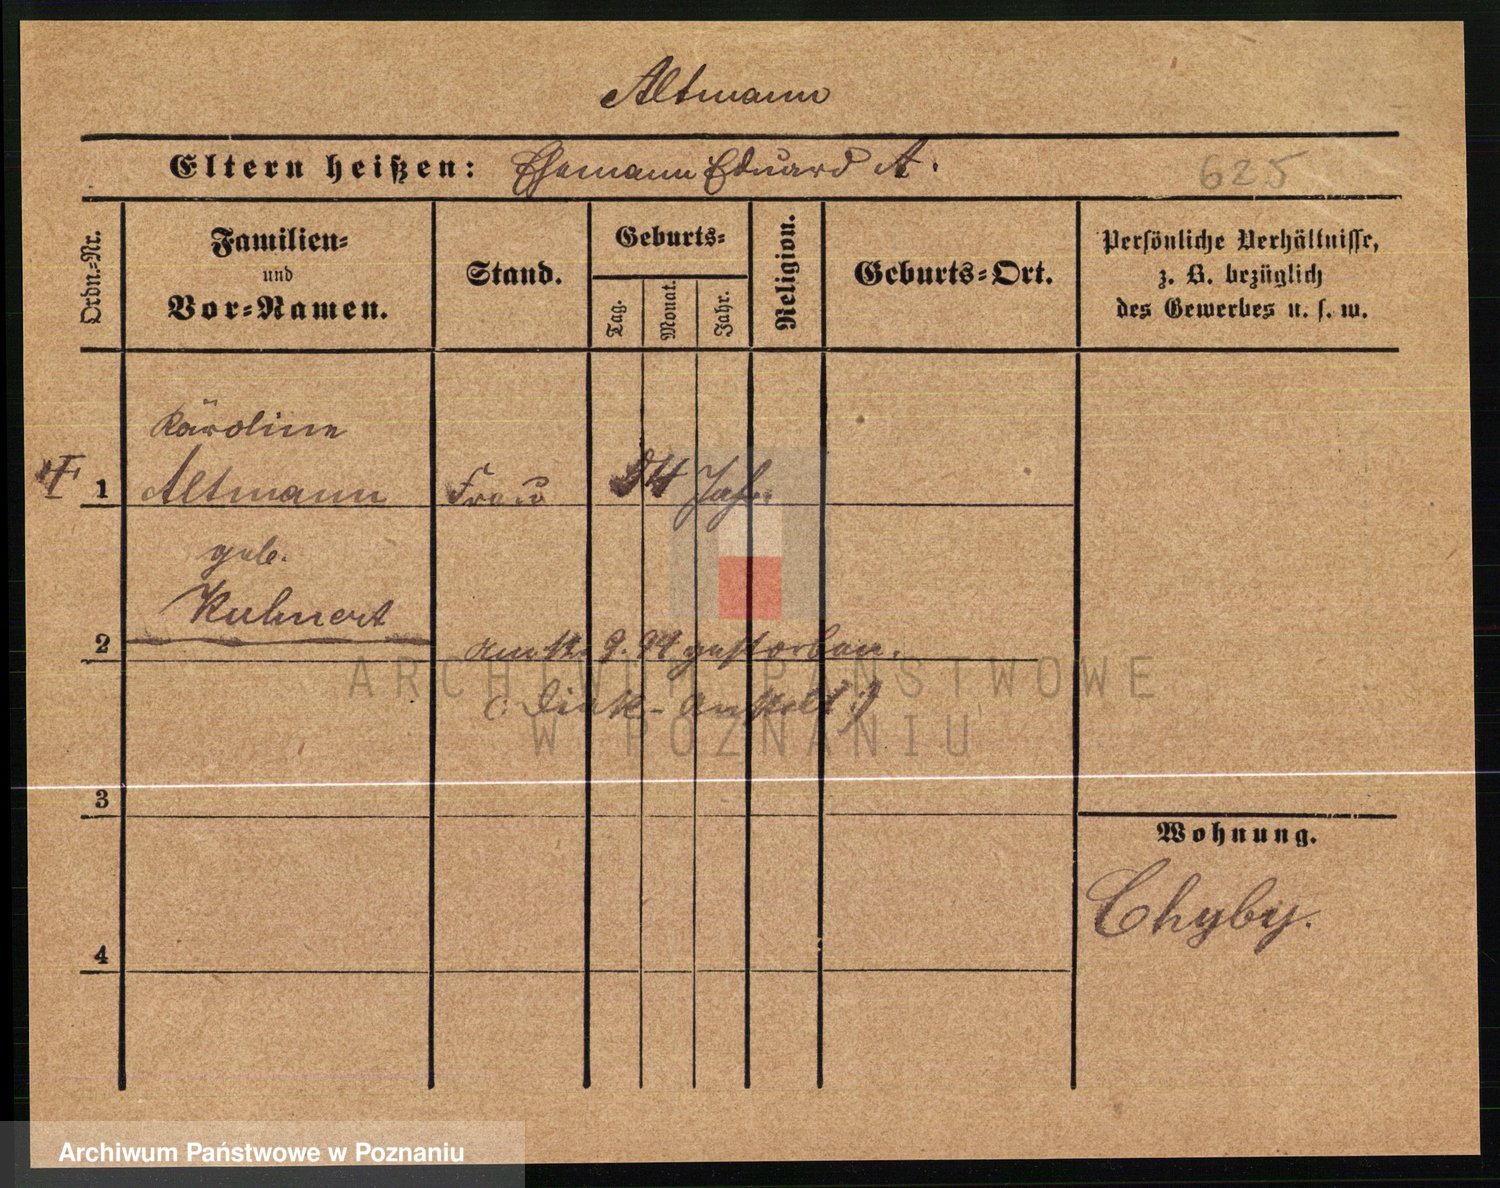 Altmann
Eltern heißen: Ehemann Eduard A.
625
Ordn.-Nr.
Familien-
und
Vor-Namen.
Stand.
Geburts-
Tag.
Monat.
Jahr.
Religion.
Geburts-Ort.
Persönliche Verhältnisse,
z. B. bezüglich
des Gewerbes u. s. w.
Karoline
1 Altmann Frau Jahr.
geb.
Kuhnert
2 am 9. gestorben.
(: Diak- Anstalt :)
3
Wohnung.
Chyby.
4
ARCHIWUM PAŃSTWOWE
W POZNANIU
Archiwum Państwowe w Poznaniu